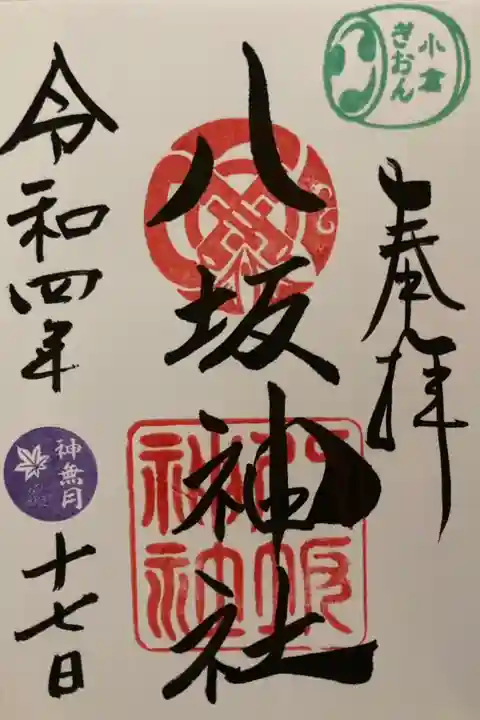 小倉
ぎおん
奉拝
八坂神社
八阪神社
令和四年
神無月
十七日